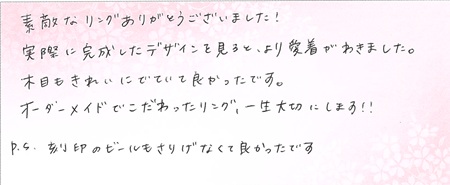 素敵なリングありがとうございました!
実際に完成したデザインを見ると、より愛着がわきました。
木目もきれいにでていて良かったです。
オーダーメイドでこだわったリング、一生大切にします!!
P.S. 刻印のビールもさりげなくて良かったです